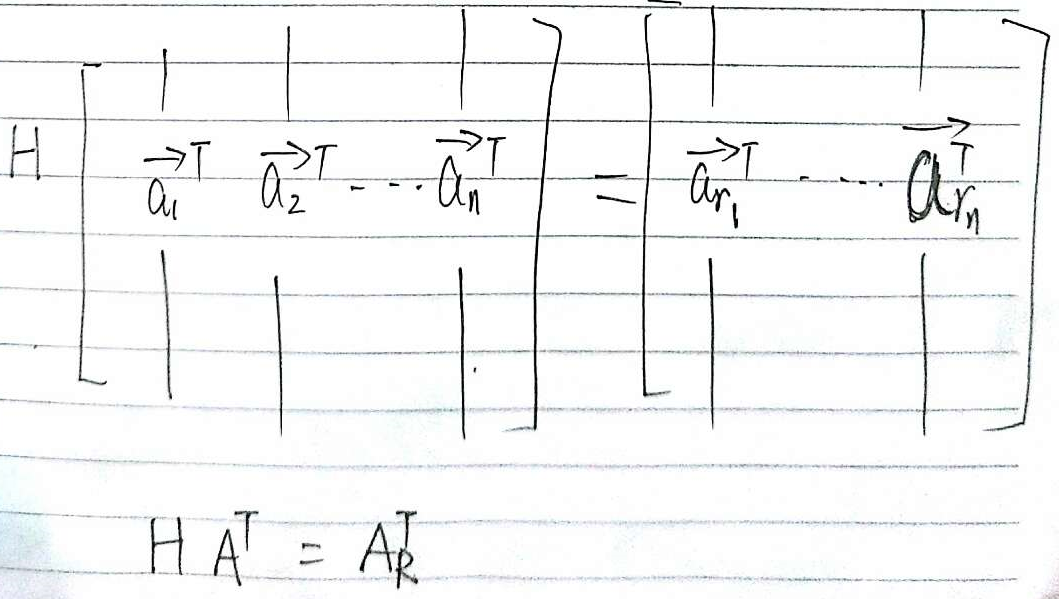 H [ a⃗₁ᵀ a⃗₂ᵀ ---- a⃗ₙᵀ ] = [ a⃗ᵣ₁ᵀ ----- a⃗ᵣₙᵀ ]
H Aᵀ = A_Rᵀ